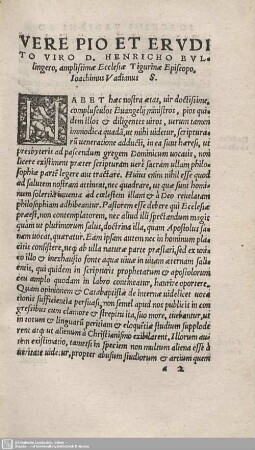 VERE PIO ET ERVDI
TO VIRO D. HENRICHO BVL
lingero, amplissimæ Ecclesiæ Tigurinæ Episcopo,
Ioachimus Vadianus S.
HABET hæc nostra ætas, uir doctissime,
complusculos Euangelij ministros, pios qui
dem illos & diligentes uiros, uerum tamen
immodica quadã, ut mihi uidetur, scripturæ
rũ ueneratione adducti, in ea sunt hæresi, ut
presbyteris ad pascendum gregem Dominicum uocatis, non
licere existiment præter scripturam ueræ sacram ullam philo
sophiæ partẽ legere aut tractare. Huius enim nihil esse quod
ad salutem nostram attineat, nec quadrare, ut quæ sunt homi
num solertia inuenta ad cœlestem illam & à Deo reuelatam
philosophiam adhibeantur. Pastorem esse debere qui Ecclesiæ
præest, non contemplatorem, nec aliud illi spectandum magis
quàm ut plurimorum salus, doctrina illa, quam Apostolus sa
nam uocat, quæratur. Eam ipsam autem nec in hominum pla
citis consistere, nec ab ulla naturæ parte præstari, sed ex uiuo
illo & inexhausto fonte aquæ uiuæ in uitam æternam sali
entis, qui quidem in scripturis prophetarum & apostolorum
ceu amplo quodam in labro contineatur, haurire oportere.
Quam opinionem & Catabaptistæ de interna uidelicet uoca
tionis sufficientia persuasi, non semel apud nos publicè in con
gressibus cum clamore & strepitu ita, suo more, tuebantur, ut
in totum & linguarũ peritiam & eloquẽtiæ studium supplode
rent atq; ut alienum à Christianismo exibilarent. Illorum au
tem existimatio, tametsi in speciem non multum aliena esse à
ueritate uideatur, propter abusum studiorum & artium quem
a 2